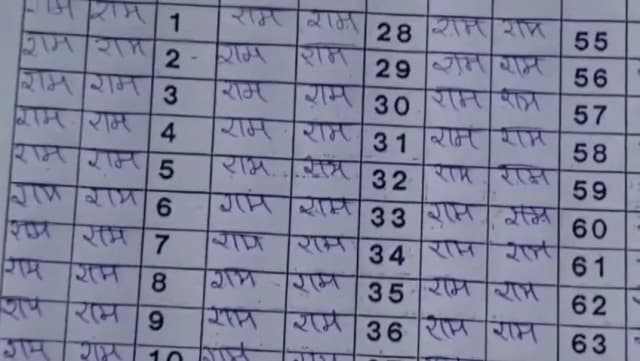 राम राम 1 राम राम 28 राम राम 55
राम राम 2 राम राम 29 राम राम 56
राम राम 3 राम राम 30 राम राम 57
राम राम 4 राम राम 31 राम राम 58
राम राम 5 राम राम 32 राम राम 59
राम राम 6 राम राम 33 राम राम 60
राम राम 7 राम राम 34 राम राम 61
राम राम 8 राम राम 35 राम राम 62
राम राम 9 राम राम 36 राम राम 63
राम राम 10 राम राम